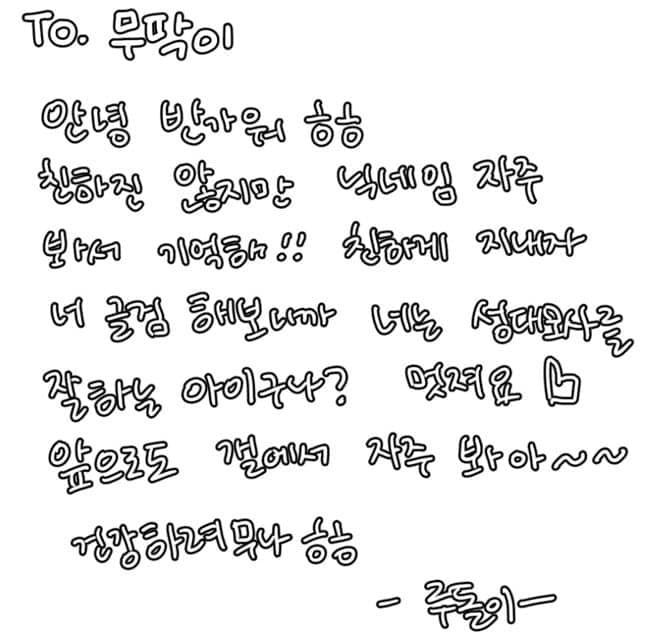 To. 무딱이
안녕 반가워 ㅎㅎ
친하진 않지만 닉네임 자주
봐서 기억해!! 친하게 지내자
너 글검 해보니까 너는 성대모사를
잘하는 아이구나? 멋져요 👍
앞으로도 갤에서 자주 봐아~~
건강하려무나 ㅎㅎ
- 주돌이 -